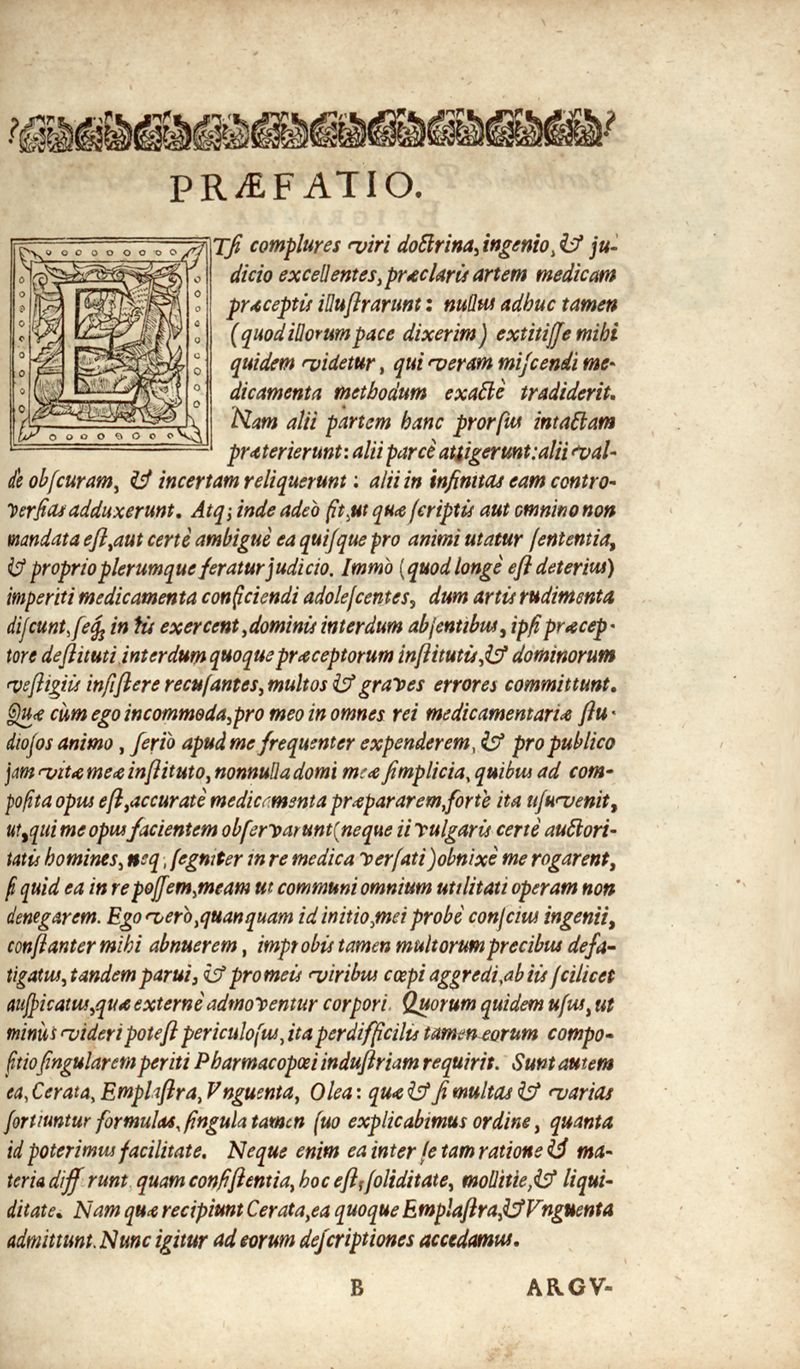 PRÆFATIO.
ETſi complures viri doctrina, ingenio, & ju-
dicio excellentes, præclaris artem medicam
præceptis illuſtrarunt: nullus adhuc tamen
(quod illorum pace dixerim) extitiſſe mihi
quidem videtur, qui veram miſcendi me-
dicamenta methodum exactè tradiderit.
Nam alii partem hanc prorſus intactam
præterierunt: alii parcè attigerunt: alii val-
de obſcuram, & incertam reliquerunt: alii in infinitas eam contro-
verſias adduxerunt. Atq; inde adeò fit, ut quæ ſcriptis aut omnino non
mandata eſt, aut certè ambiguè ea quiſque pro animi utatur ſententia,
& proprio plerumque feratur judicio. Immò (quod longè eſt deterius)
imperiti medicamenta conficiendi adoleſcentes, dum artis rudimenta
diſcunt, ſeq; in iis exercent, dominis interdum abſentibus, ipſi præcep-
tore deſtituti interdum quoque præceptorum inſtitutis, & dominorum
veſtigiis inſiſtere recuſantes, multos & graves errores committunt.
Quæ cùm ego incommoda, pro meo in omnes rei medicamentariæ ſtu-
dioſos animo, ſeriò apud me frequenter expenderem, & pro publico
jam vitæ meæ inſtituto, nonnulla domi meæ ſimplicia, quibus ad com-
poſita opus eſt, accuratè medicamenta præpararem, fortè ita uſuvenit,
ut, qui me opus facientem obſervarunt (neque ii vulgaris certè auctori-
tatis homines, neq; ſegniter in re medica verſati) obnixè me rogarent,
ſi quid ea in re poſſem, meam ut communi omnium utilitati operam non
denegarem. Ego verò, quanquam id initio, mei probè conſcius ingenii,
conſtanter mihi abnuerem, improbis tamen multorum precibus defa-
tigatus, tandem parui, & pro meis viribus cœpi aggredi, ab iis ſcilicet
auſpicatus, quæ externè admoventur corpori. Quorum quidem uſus, ut
minùs videri poteſt periculoſus, ita perdifficilis tamen eorum compo-
ſitio ſingularem periti Pharmacopœi induſtriam requirit. Sunt autem
ea, Cerata, Emplaſtra, Vnguenta, Olea: quæ & ſi multas & varias
ſortiuntur formulas, ſingula tamen ſuo explicabimus ordine, quanta
id poterimus facilitate. Neque enim ea inter ſe tam ratione & ma-
teria differunt quam conſiſtentia, hoc eſt, ſoliditate, mollitie, & liqui-
ditate. Nam quæ recipiunt Cerata, ea quoque Emplaſtra, & Vnguenta
admittunt. Nunc igitur ad eorum deſcriptiones accedamus.
B ARGV-